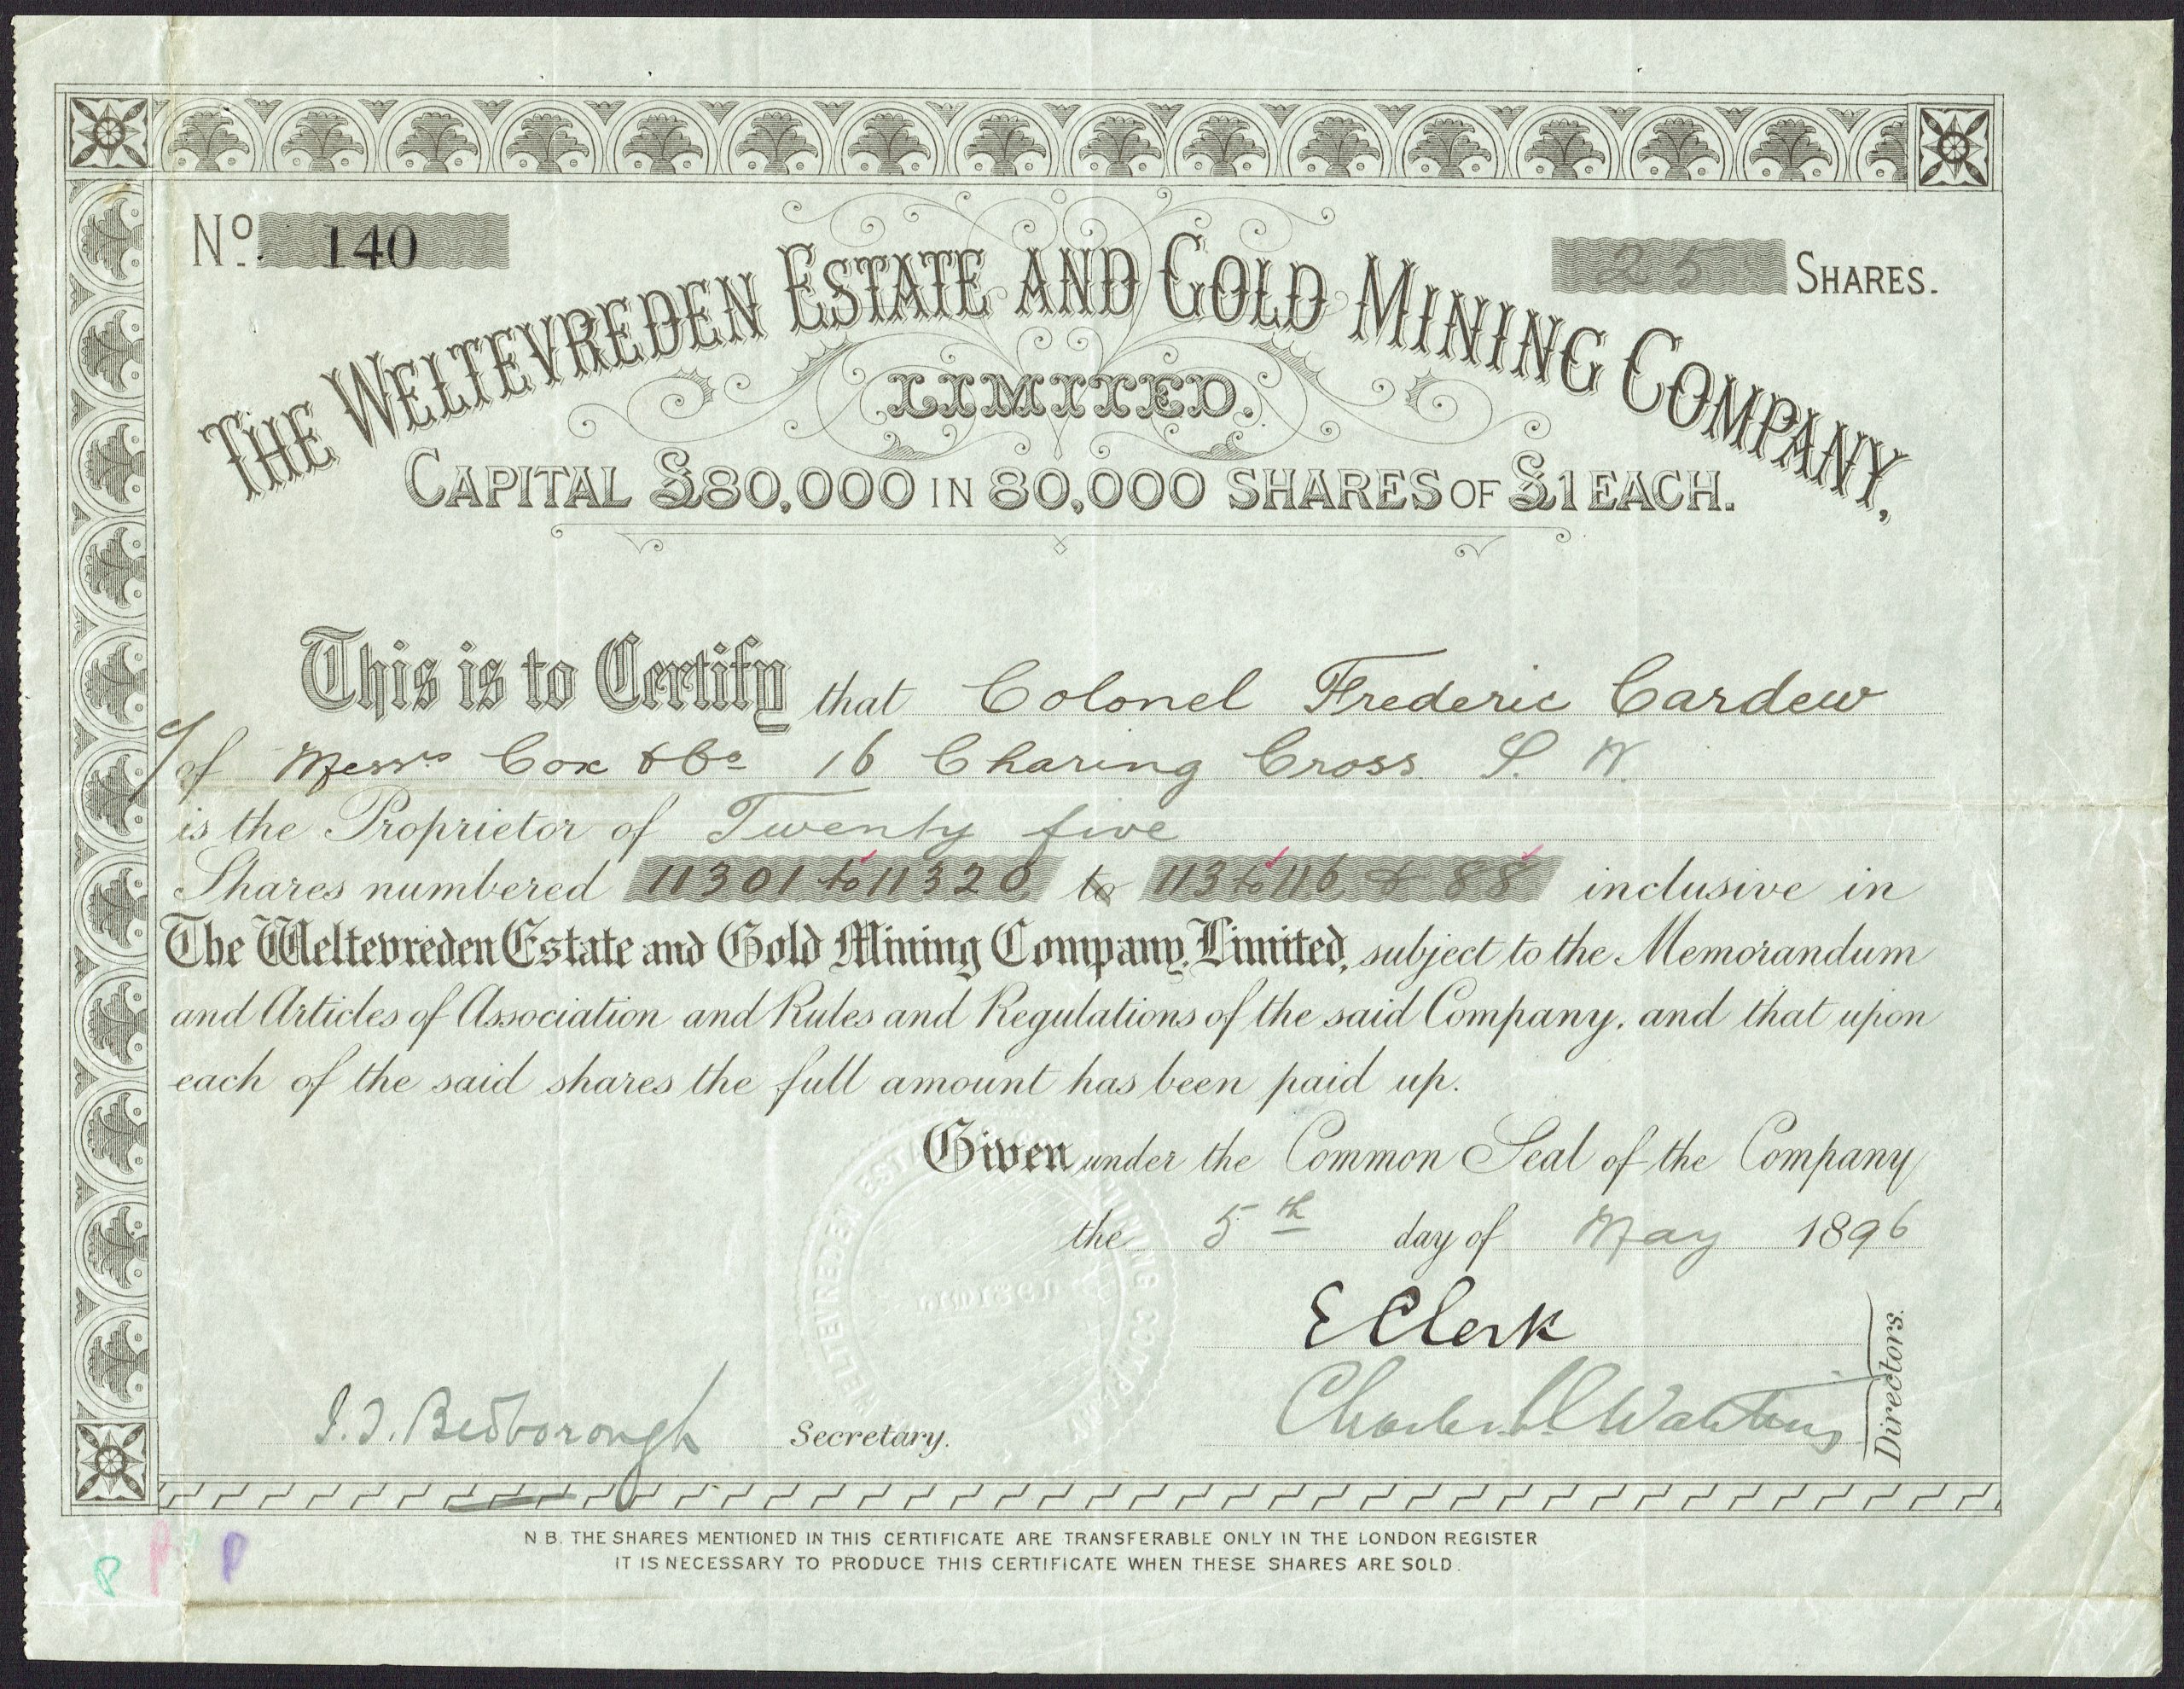 No. 140
25 SHARES.
THE WELTEVREDEN ESTATE AND GOLD MINING COMPANY,
LIMITED.
CAPITAL £80,000 IN 80,000 SHARES OF £1 EACH.
This is to Certify that Colonel Frederic Cardew
c/ of Messrs Cox & Co 16 Charing Cross S. W.
is the Proprietor of Twenty five
Shares numbered 11301 to 11320 to 113 to 116 & 88 inclusive in
The Weltevreden Estate and Gold Mining Company, Limited, subject to the Memorandum
and Articles of Association and Rules and Regulations of the said Company, and that upon
each of the said shares the full amount has been paid up.
Given under the Common Seal of the Company
the 5th day of May 1896
E Clerk
Charles Watkins
Directors.
J. J. Bedborough Secretary.
WELTEVREDEN ESTATE MINING COMPANY
LIMITED
N B. THE SHARES MENTIONED IN THIS CERTIFICATE ARE TRANSFERABLE ONLY IN THE LONDON REGISTER
IT IS NECESSARY TO PRODUCE THIS CERTIFICATE WHEN THESE SHARES ARE SOLD.
P P P